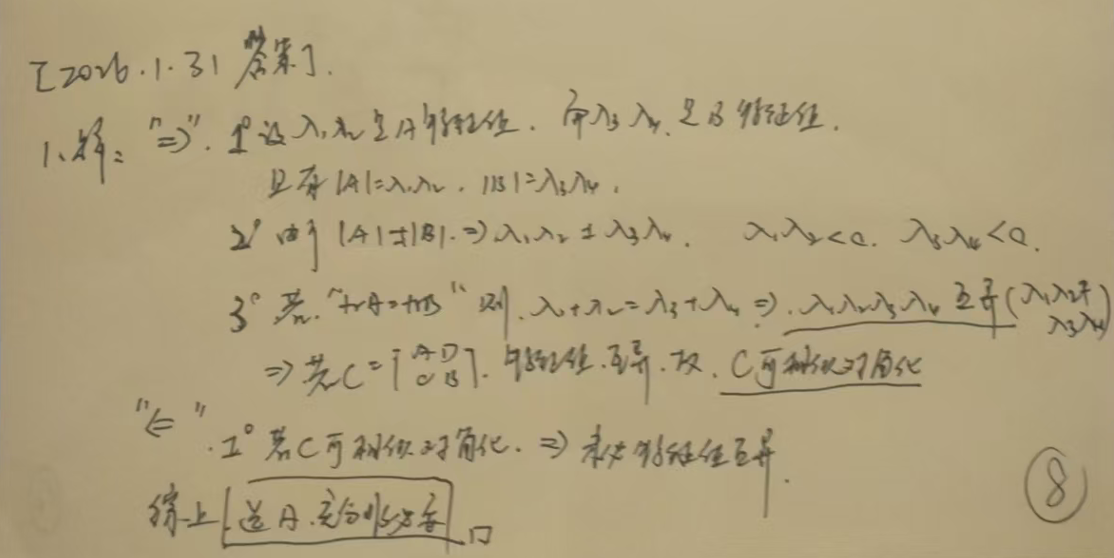 [2026.1.31 答案].
1、解: "⇒". 1° 设λ₁λ₂是A特征值. 而λ₃λ₄.是B特征值.
且有|A|=λ₁λ₂. |B|=λ₃λ₄.
2° 由于|A|≠|B|.⇒λ₁λ₂≠λ₃λ₄. λ₁λ₂<0. λ₃λ₄<0.
3° 若."trA=trB"则.λ₁+λ₂=λ₃+λ₄⇒.λ₁λ₂λ₃λ₄互异(λ₁λ₂≠λ₃λ₄)
⇒若C=[A D
0 B].特征值.互异.故.C可相似对角化
"⇐".1°若C可相似对角化.⇒未必特征值互异.
综上选A.充分非必要 □
⑧